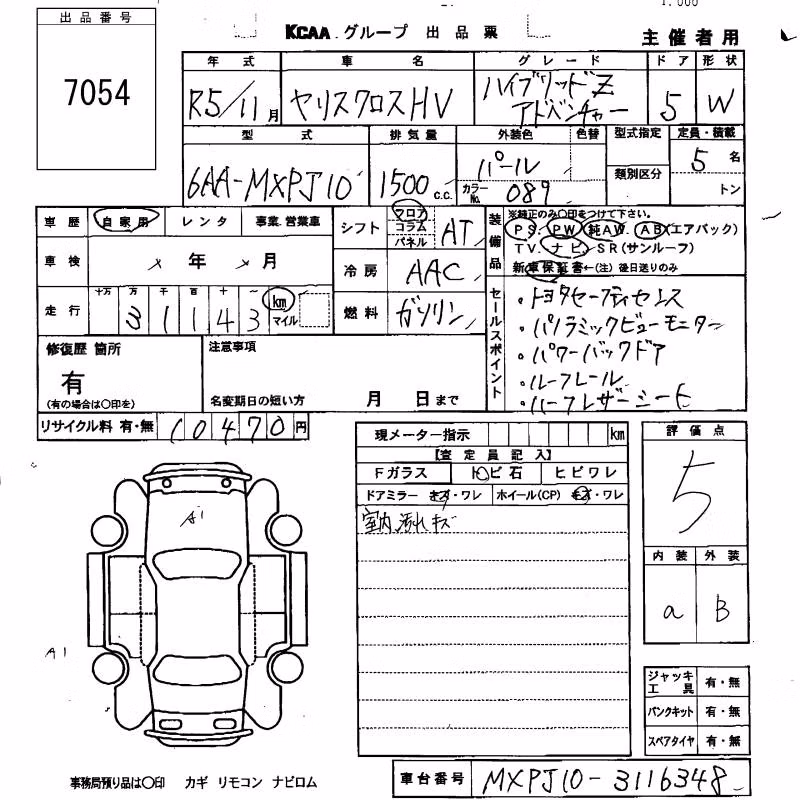 出品番号
7054
KCAA グループ 出品票
主催者用
年式 車名 グレード ドア 形状
R5/11月 ヤリスクロスHV ハイブリッドZ アドベンチャー 5 W
型式 排気量 外装色 色替 型式指定 定員・積載
6AA-MXPJ10 1500 c.c. パール 類別区分 5名
カラーNo. 089 トン
車歴 自家用 レンタ 事業.営業車
車検 年 月
走行 十万 万 千 百 十 一 km マイル
3 1 1 4 3
シフト フロア コラム パネル AT
冷房 AAC
燃料 ガソリン
装備品
※純正のみ〇印をつけて下さい。
PS. PW 純AW. AB(エアバック)
TV. ナビ. SR(サンルーフ)
新車保証書←(注)後日送りのみ
セールスポイント
・トヨタセーフティセンス
・パノラミックビューモニター
・パワーバックドア
・ルーフレール
・ハーフレザーシート
修復歴 箇所
有
(有の場合は〇印を)
注意事項
名変期日の短い方 月 日まで
リサイクル料 有・無 10470円
現メーター指示 km
【査定員記入】
Fガラス トビ石 ヒビワレ
ドアミラー キズ・ワレ ホイール(CP) キズ・ワレ
室内汚れキズ
評価点
5
内装 外装
a B
A1
A1
ジャッキ工具 有・無
パンクキット 有・無
スペアタイヤ 有・無
事務局預り品は〇印 カギ リモコン ナビロム
車台番号 MXPJ10-3116348